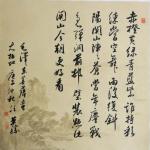 赤橙黄绿青蓝紫谁持彩
练当空舞雨后复斜
阳関山阵阵苍当年鏖战
急弹洞前村壁装点此
関山今朝更好看
毛泽东菩萨蛮
大柏地